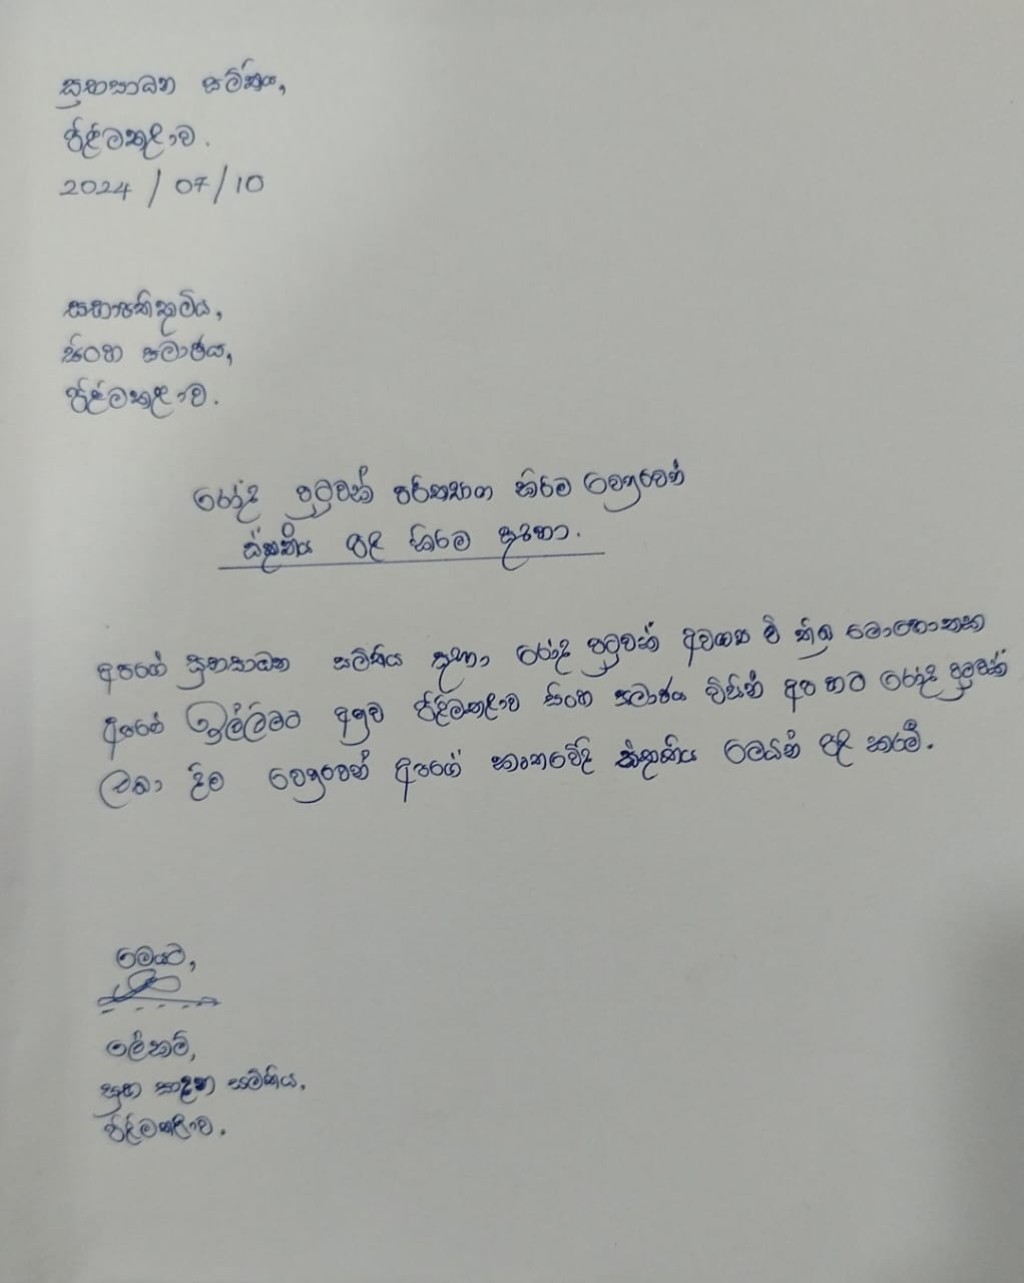 සුභසාධන සමිතිය,
පිළිමතලාව.
2024 / 07 / 10
සභාපතිතුමිය,
සිංහ සමාජය,
පිළිමතලාව.
රෝද පුටුවක් පරිත්‍යාග කිරීම වෙනුවෙන්
ස්තූතිය පළ කිරීම සඳහා.
අපගේ සුභසාධන සමිතිය සඳහා රෝද පුටුවක් අවශ්‍ය වී තිබූ මොහොතක
අපගේ ඉල්ලීමට අනුව පිළිමතලාව සිංහ සමාජය විසින් අප හට රෝද පුටුවක්
ලබා දීම වෙනුවෙන් අපගේ කෘතවේදී ස්තූතිය මෙයින් පළ කරමි.
මෙයට,
ලේකම්,
සුභ සාදන සමිතිය.
පිළිමතලාව.